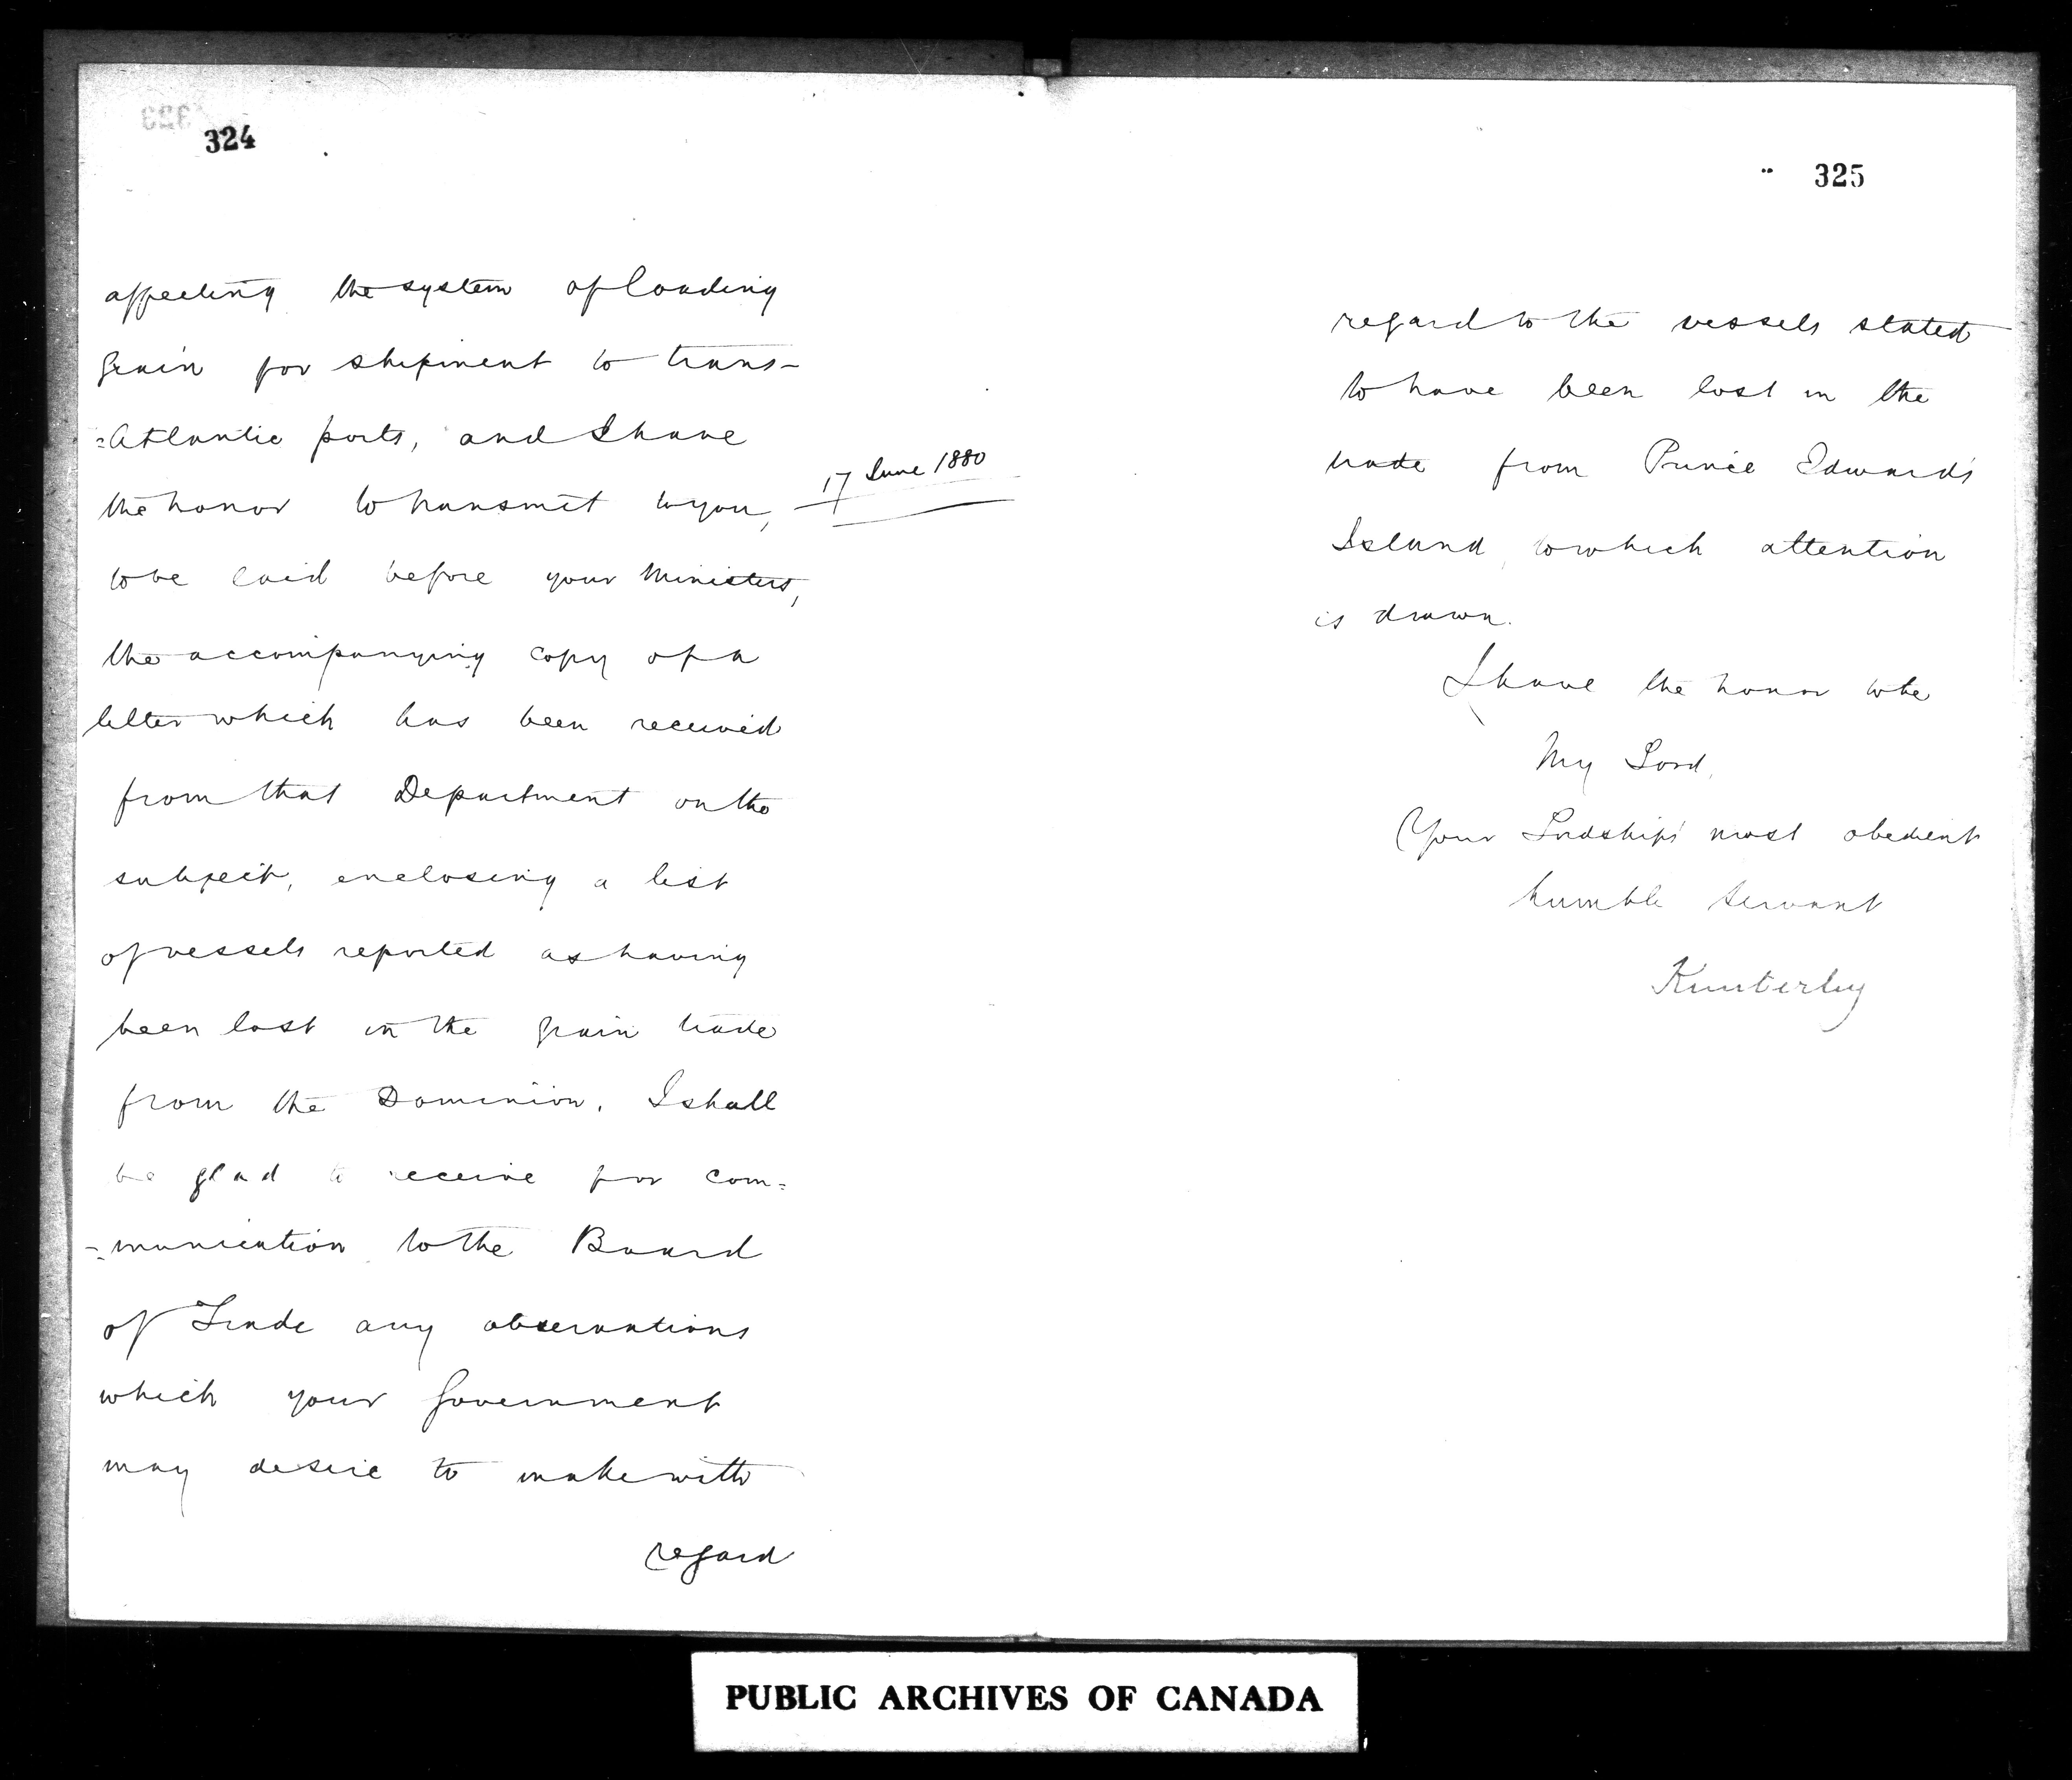 324
affecting the system of loading
grain for shipment to trans-
=Atlantic ports, and I have
the honor to transmit to you,
17 June 1880
to be laid before your Ministers,
the accompanying copy of a
letter which has been received
from that Department on the
subject, enclosing a list
of vessels reported as having
been lost in the grain trade
from the Dominion. I shall
be glad to receive for com=
=munication to the Board
of Trade any observations
which your Government
may desire to make with
regard
325
regard to the vessels stated
to have been lost in the
trade from Prince Edward's
Island, to which attention
is drawn.
I have the honor to be
My Lord,
Your Lordship's most obedient
humble servant
Kimberley
PUBLIC ARCHIVES OF CANADA